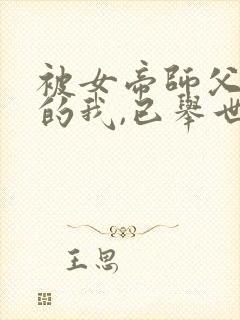 被女帝師父
的我,已舉世
王思